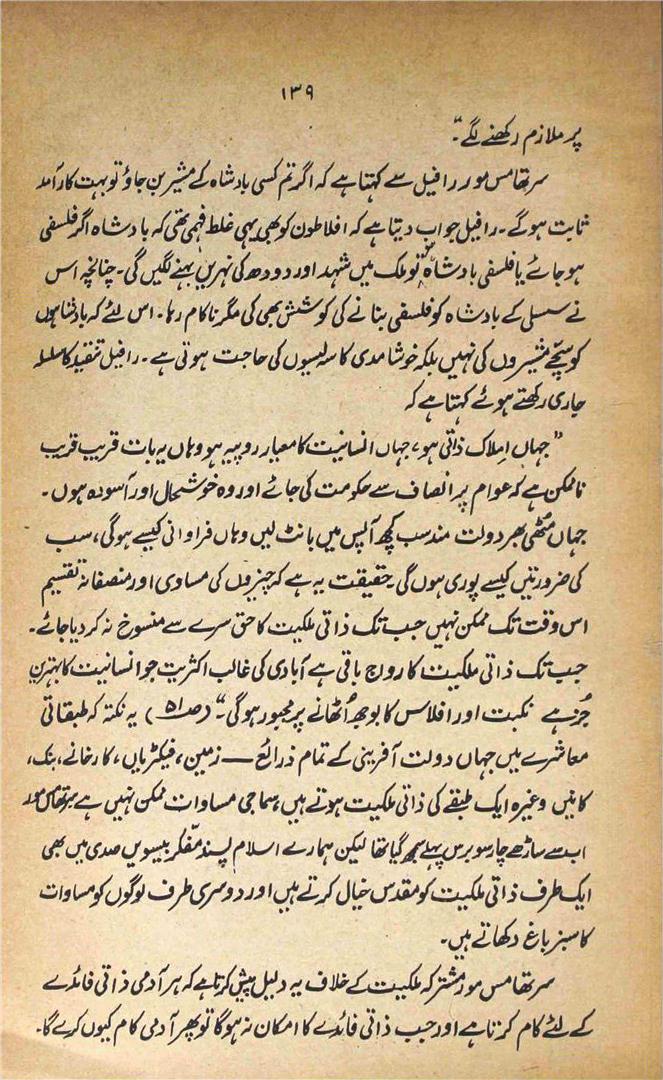 ۱۳۹
پر ملازم رکھنے لگے۔“
سر تھامس مور رافیل سے کہتا ہے کہ اگر تم کسی بادشاہ کے مشیر بن جاؤ تو بہت کار آمد
ثابت ہوگے۔ رافیل جواب دیتا ہے کہ افلاطون کو بھی یہی غلط فہمی تھی کہ بادشاہ اگر فلسفی
ہو جائے یا فلسفی بادشاہ تو ملک میں شہد اور دودھ کی نہریں بہنے لگیں گی۔ چنانچہ اس
نے سسلی کے بادشاہ کو فلسفی بنانے کی کوشش بھی کی مگر ناکام رہا۔ اس لئے کہ بادشاہوں
کو سچے مشیروں کی نہیں بلکہ خوشامدی کاسہ لیسوں کی حاجت ہوتی ہے۔ رافیل تنقید کا سلسلہ
جاری رکھتے ہوئے کہتا ہے کہ
”جہاں املاک ذاتی ہو، جہاں انسانیت کا معیار روپیہ ہو وہاں یہ بات قریب قریب
ناممکن ہے کہ عوام پر انصاف سے حکومت کی جائے اور وہ خوشحال اور آسودہ ہوں۔
جہاں مُٹھی بھر دولت مند سب کچھ آپس میں بانٹ لیں وہاں فراوانی کیسے ہوگی، سب
کی ضرورتیں کیسے پوری ہوں گی۔ حقیقت یہ ہے کہ چیزوں کی مساوی اور منصفانہ تقسیم
اس وقت تک ممکن نہیں جب تک ذاتی ملکیت کا حق سرے سے منسوخ نہ کر دیا جائے۔
جب تک ذاتی ملکیت کا رواج باقی ہے آبادی کی غالب اکثریت جو انسانیت کا بہترین
جُز ہے نکبت اور افلاس کا بوجھ اُٹھانے پر مجبور ہوگی۔“ (ص ۵۱) یہ نکتہ کہ طبقاتی
معاشرے میں جہاں دولت آفرینی کے تمام ذرائع — زمین، فیکٹریاں، کارخانے، بنک،
کانیں وغیرہ ایک طبقے کی ذاتی ملکیت ہوتے ہیں، سماجی مساوات ممکن نہیں ہے سر تھامس مور
اب سے ساڑھے چار سو برس پہلے سمجھ گیا تھا لیکن ہمارے اسلام پسند مفکر بیسویں صدی میں بھی
ایک طرف ذاتی ملکیت کو مقدس خیال کرتے ہیں اور دوسری طرف لوگوں کو مساوات
کا سبز باغ دکھاتے ہیں۔
سر تھامس مور مشترکہ ملکیت کے خلاف یہ دلیل پیش کرتا ہے کہ ہر آدمی ذاتی فائدے
کے لئے کام کرتا ہے اور جب ذاتی فائدے کا امکان نہ ہوگا تو پھر آدمی کام کیوں کرے گا۔